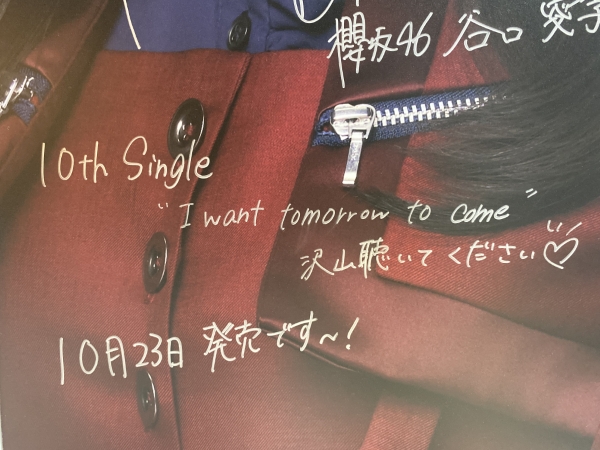 櫻坂46 谷口 愛季
10th Single
"I want tomorrow to come"
沢山聴いてください♡
10月23日 発売です〜!